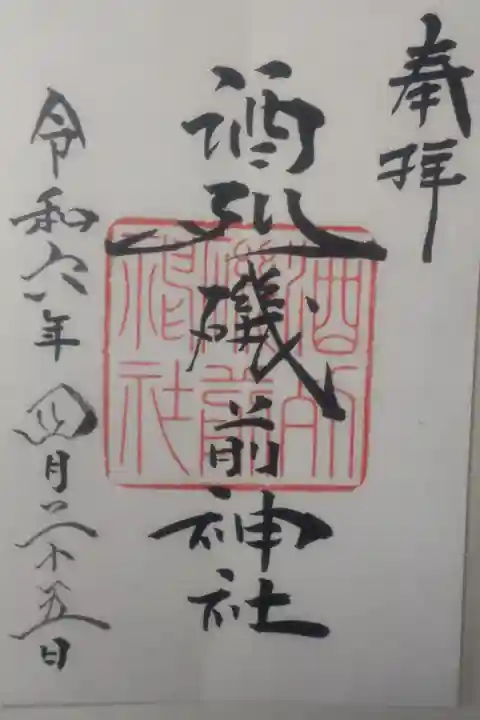 奉拝
酒列磯前神社
酒列
磯前
神社
令和六年四月二十五日